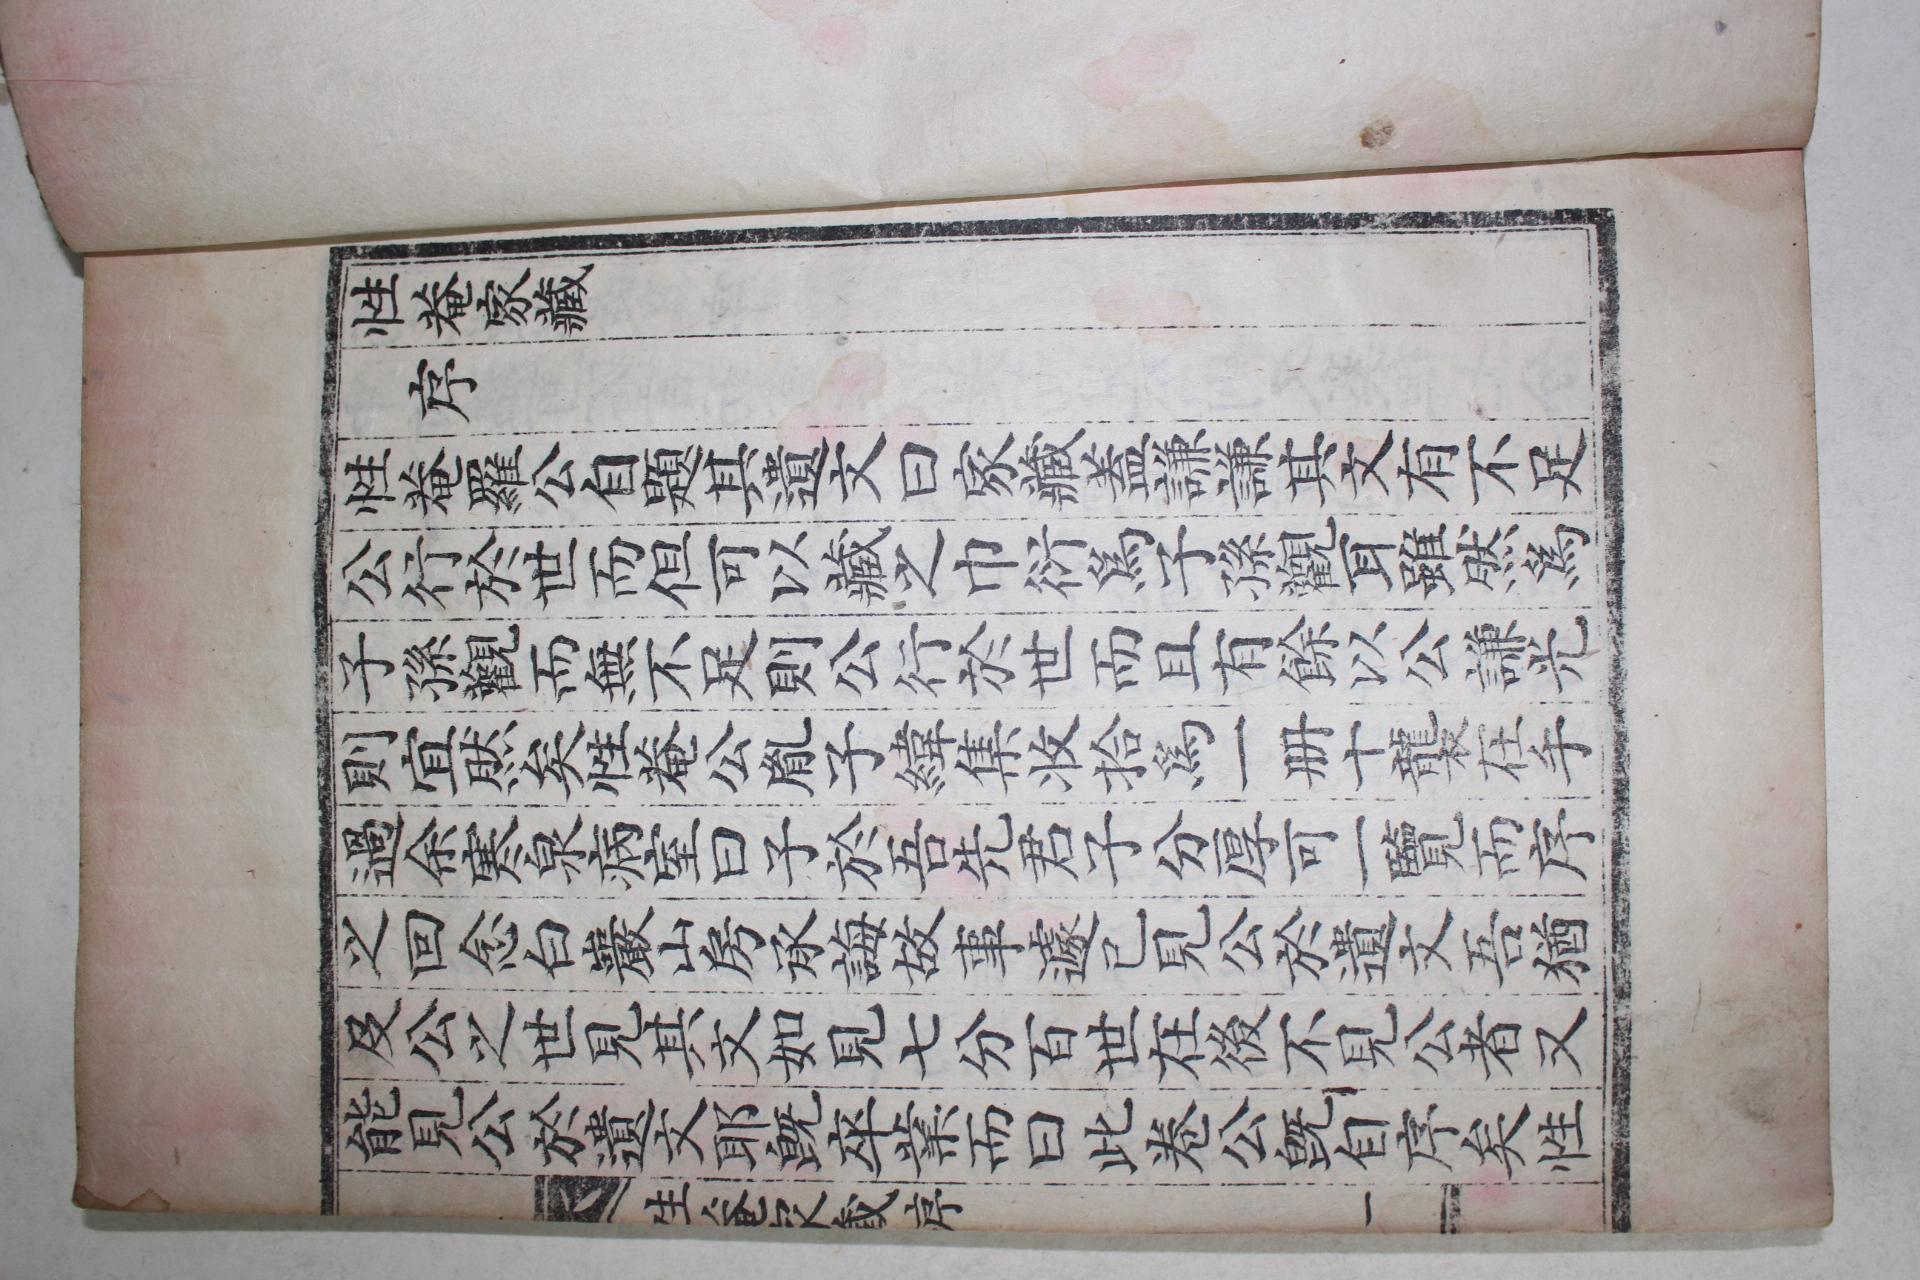 性菴家藏
序
性菴羅公自題其遺文曰家藏蓋謙謙其文有不足
公行於世而但可以藏之巾衍爲子孫觀耳雖然爲
子孫觀而無不足則公行於世而且有餘以公謙光
則宜然矣性菴公胤子緯集收拾爲一冊十襲在手
過余寒泉病室曰子於吾先君子分厚可一覽而序
之回念白巖山房承誨故事遽已見公於遺文吾猶
及公之世見其文如見七分百世在後不見公者又
能見公於遺文耶旣卒業而曰此卷公旣自序矣性
性菴家藏序
一